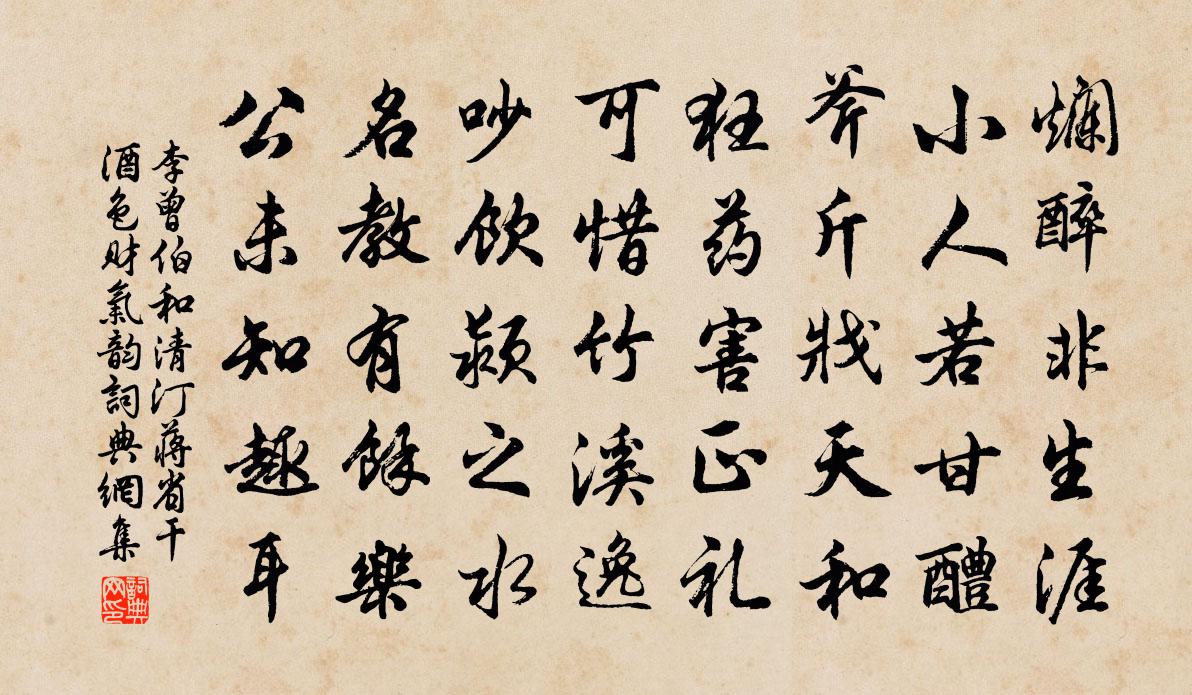 爛醉非生涯
小人若甘醴
斧斤戕天和
狂药害正礼
可惜竹溪逸
吵飲颍之水
名教有餘樂
公未知趣耳
李曾伯和清汀蔣省干
酒色財氣韵詞典網集
詞典网印